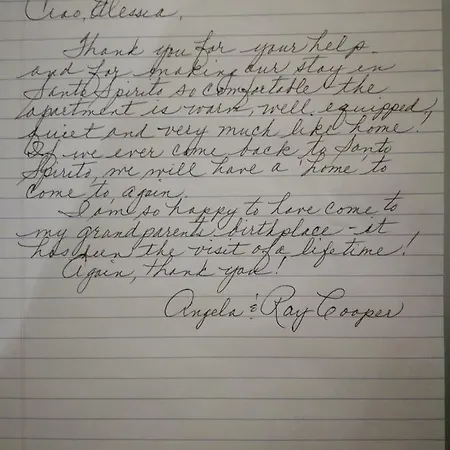 Ciao, Alessia,
Thank you for your help
and for making our stay in
Sante Spirito so comfortable the
apartment is warm, well equipped,
quiet and very much like home!
If we ever come back to Santo
Spirito, we will have a "home" to
come to, again.
I am so happy to have come to
my grandparents birthplace - it
has been the visit of a lifetime!
Again, thank you!
Angela & Ray Cooper